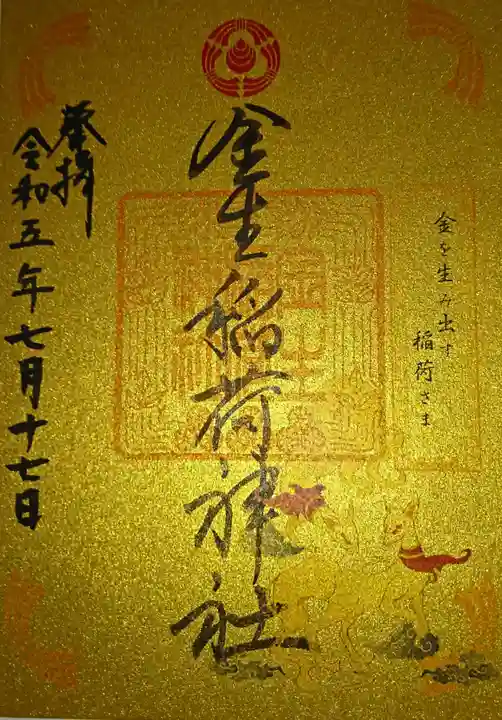 金を生み出す
稲荷さま
金生稲荷神社
奉拝
令和五年七月十七日